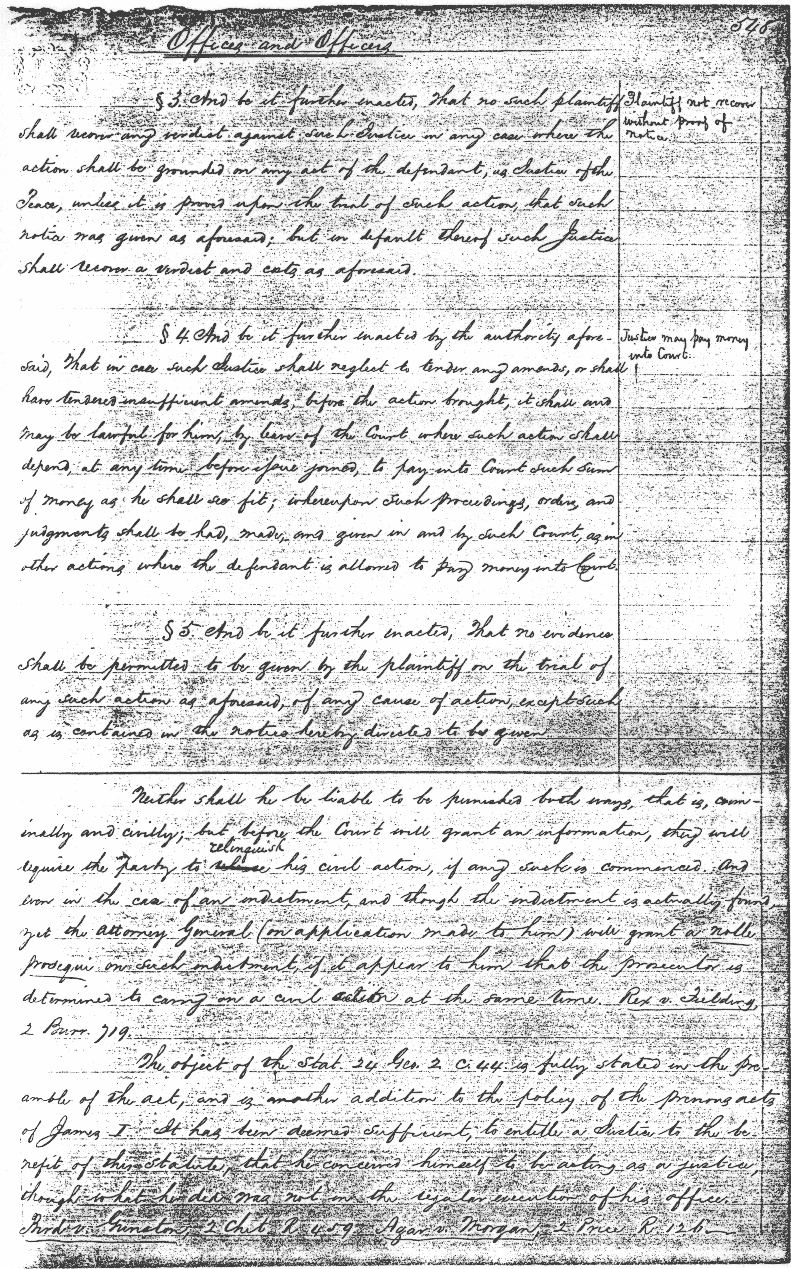 Offices and Officers
546
§ 3. And be it further enacted, That no such plaintiff
shall recover any verdict against such Justice in any case where the
action shall be grounded on any act of the defendant, as Justice of the
Peace, unless it is proved upon the trial of such action, that such
notice was given as aforesaid; but in default thereof such Justice
shall recover a verdict and costs as aforesaid.
Plaintiff not recover
without proof of
notice
§ 4. And be it further enacted by the authority afore-
said, That in case such Justice shall neglect to tender any amends, or shall
have tendered insufficient amends, before the action brought, it shall and
may be lawful for him, by leave of the Court where such action shall
depend, at any time before issue joined, to pay into Court such sum
of money as he shall see fit; whereupon such proceedings, orders, and
judgments shall be had, made, and given in and by such Court, as in
other actions where the defendant is allowed to pay money into Court.
Justice may pay money
into Court.
§ 5. And be it further enacted, That no evidence
shall be permitted to be given by the plaintiff on the trial of
any such action as aforesaid, of any cause of action, except such
as is contained in the notice hereby directed to be given.
Neither shall he be liable to be punished both ways, that is, crim-
inally and civilly; but before the Court will grant an information, they will
relinquish
require the party to his civil action, if any such is commenced. And
even in the case of an indictment, and though the indictment is actually found,
yet the Attorney General (on application made to him) will grant a nolle
prosequi on such indictment, if it appear to him that the prosecutor is
determined to carry on a civil action at the same time. Rex v. Fielding,
2 Burr. 719.
The object of the Stat. 24 Geo. 2 c. 44. is fully stated in the pre-
amble of the act, and is another addition to the policy of the previous acts
of James I. It has been deemed sufficient, to entitle a Justice to the be-
nefit of this statute, that he conceived himself to be acting as a justice,
though what he did was not in the regular execution of his office.
Bird v. Gunston, 2 Chit. R. 459. Agar v. Morgan, 2 Price R. 126.